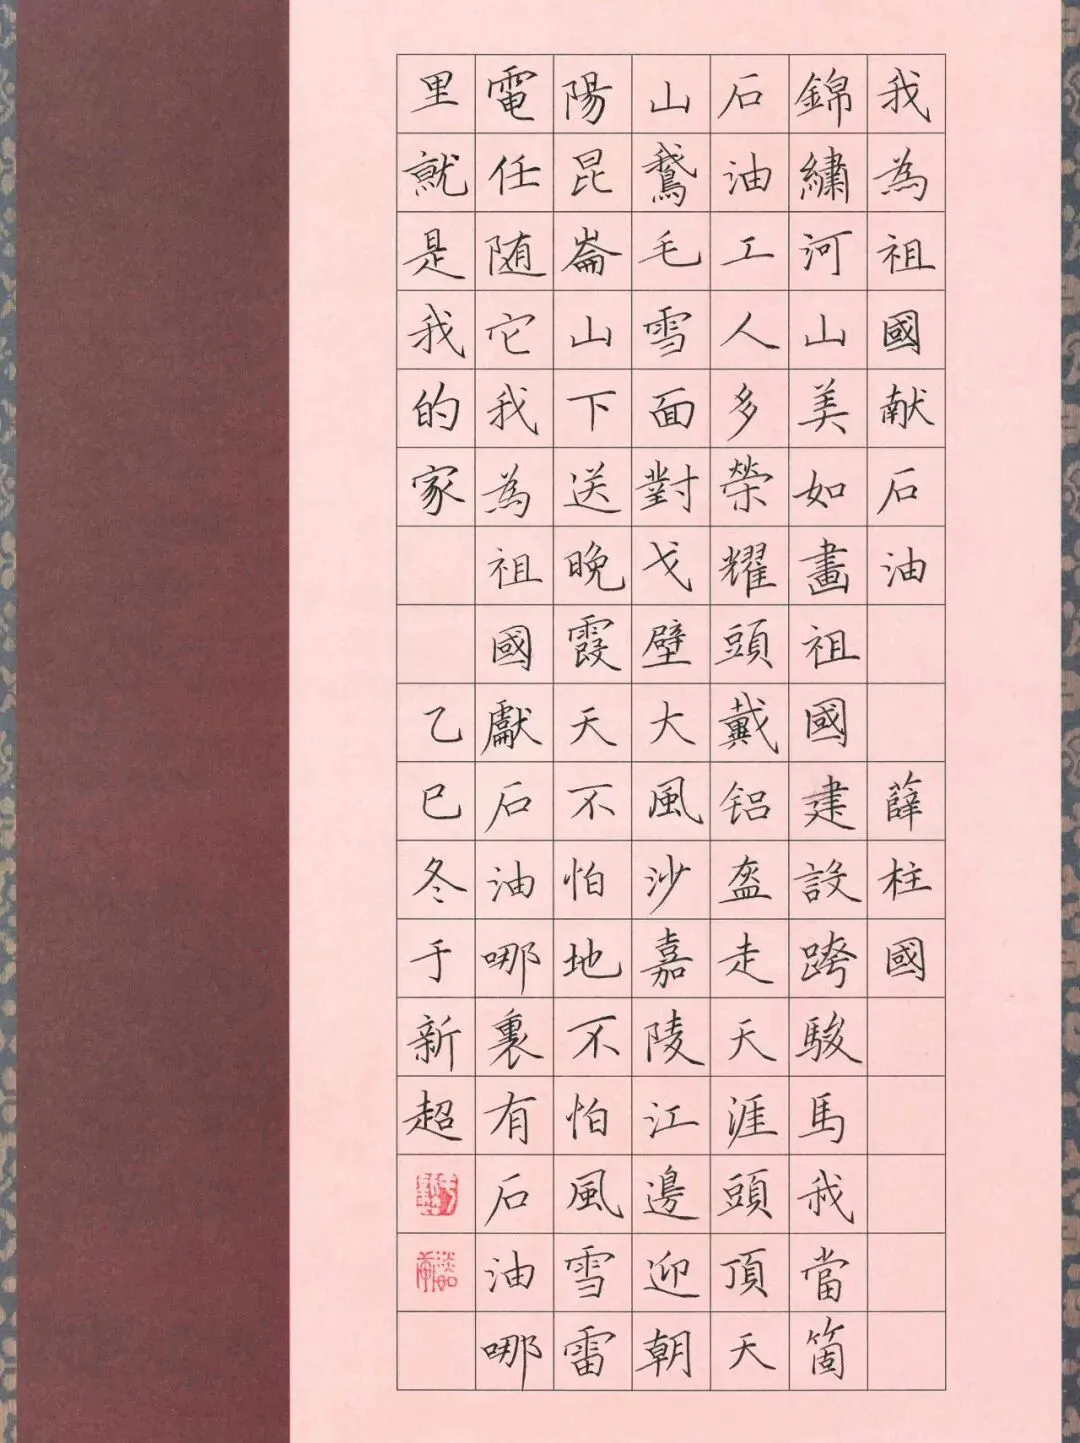 我為祖國献石油 薛柱國
錦繡河山美如畫祖國建設跨駿馬我當箇
石油工人多榮耀頭戴铝盔走天涯頭頂天
山鵞毛雪面對戈壁大風沙嘉陵江邊迎朝
陽昆崙山下送晚霞天不怕地不怕風雪雷
電任随它我為祖國獻石油哪裏有石油哪
里就是我的家 乙巳冬于新超